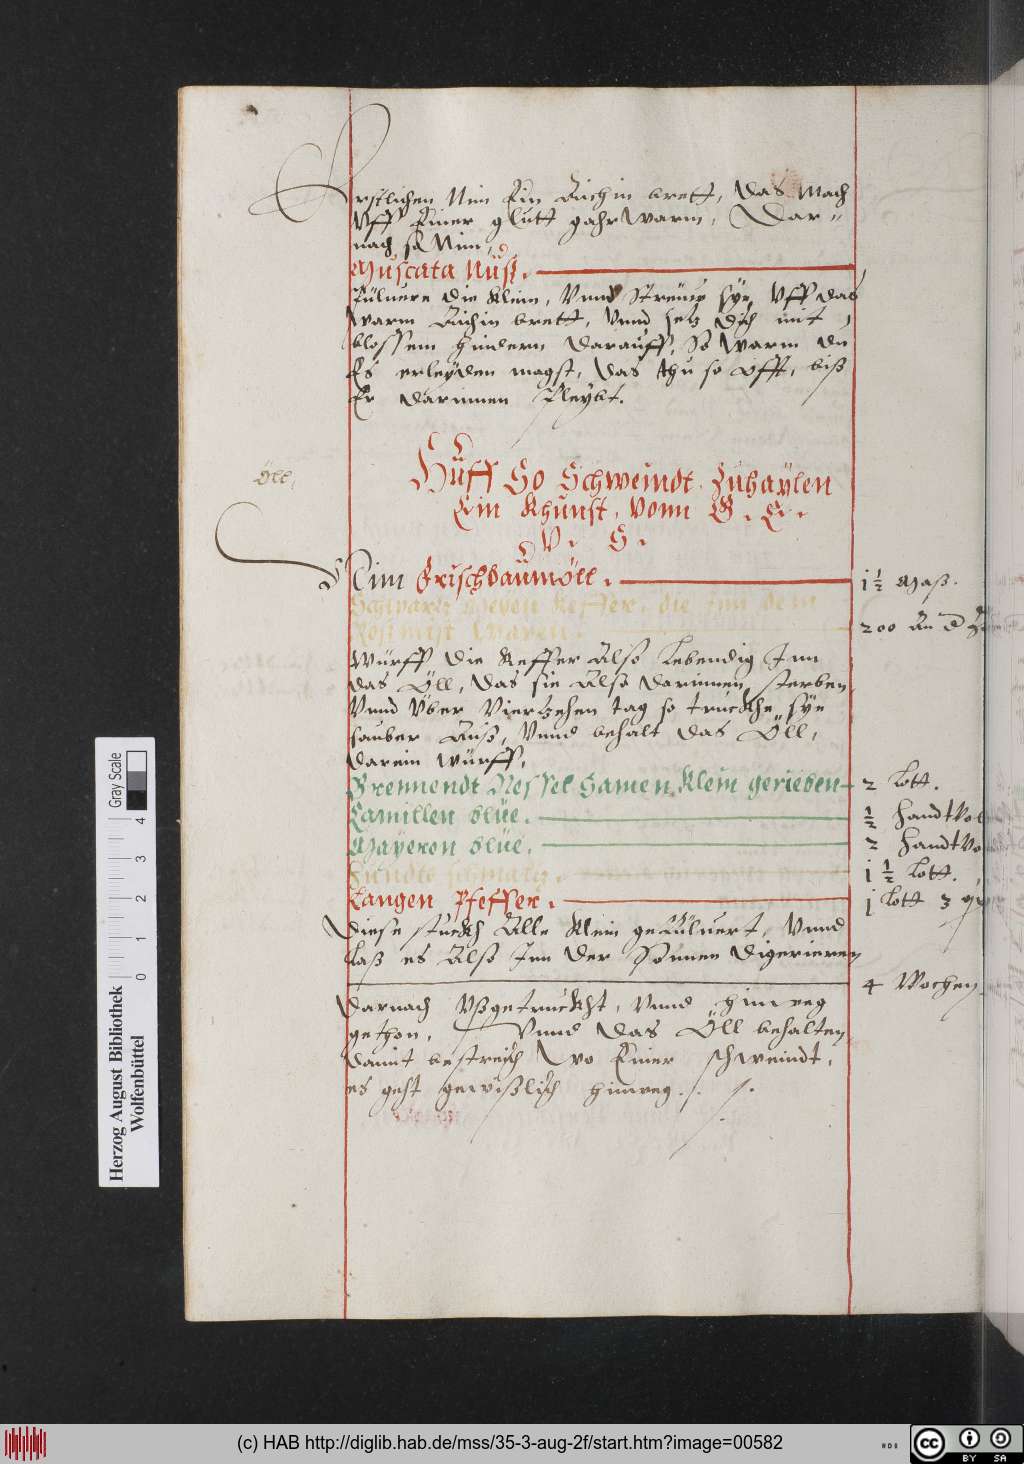 Erstlichen Nim Ein Buchin brett, Das Mach
Vff Einer glutt gahr warm, Dar-
nach so Nim,
Muscata Nüß.
Pülvere die klein, Vnnd Streuw sye, Vff das
warm Buchin brett, Vnnd setz dich mit
blossem hindern darauff, So warm du
Es erleyden magst, das thu so offt, biß
Er darinnen Pleybt.
Huff So Schweindt Zuhaylen
Ein Khunst, Vonn G. E.
V. S.
Öll,
Nim Frischbaumöll. 1 1/2 Maß.
Schwartz Keffer, die Inn dem
Rosmist Waren. 200 An d
Würff die Keffer Also Lebendig Inn
das Öll, das sie Also darinnen sterben,
Vnnd Vber Viertzehen tag so truckhe sye
sauber Auß, Vnnd behalt das Öll,
darein würff,
Brennendt Nessel Samen, Klein gerieben 2 Lott.
Camillen blüe. 1/2 handtVol
Mayeron blüe. 2 handtVo
Hundts schmaltz. 1 1/2 Lott.
Langen Pfeffer. 1 Lott 3
Diese stuckh Alle klein gepülvert, Vnnd
Laß es Also Inn der Sonnen digerieren
4 Wochen.
Darnach Vßgetruckht, Vnnd hinweg
gethon, Vnnd das Öll behalten
damit bestreich Wo Einer schweindt,
es geht gewißlich hinweg.
Herzog August Bibliothek
Wolfenbüttel
Gray Scale
0 1 2 3 4
(c) HAB http://diglib.hab.de/mss/35-3-aug-2f/start.htm?image=00582
cc BY SA